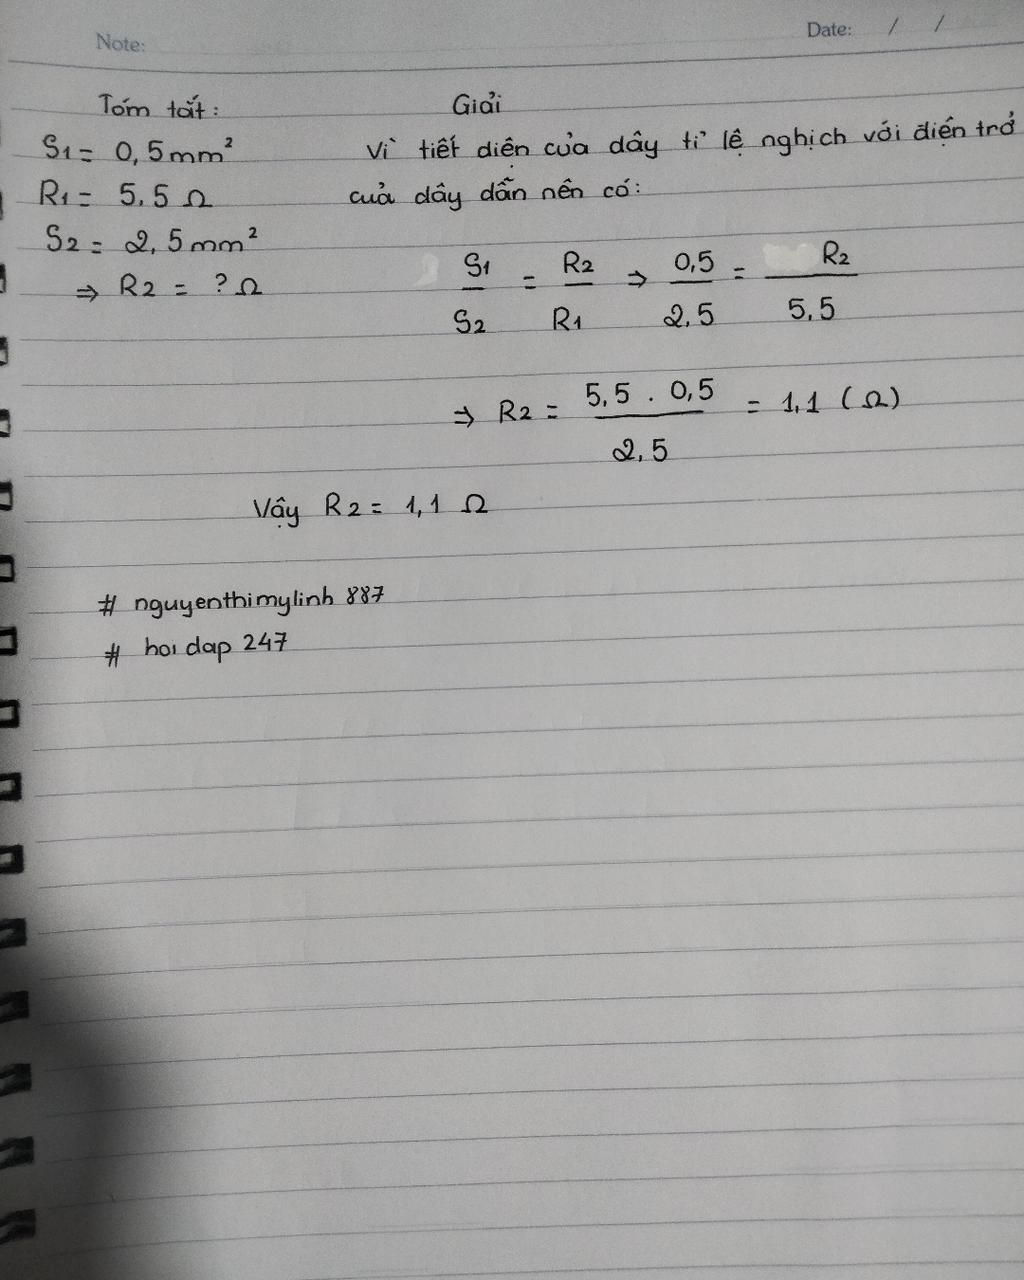 Note:
Date: / /
Tóm tắt:
S1 = 0,5mm²
R1 = 5,5 Ω
S2 = 2,5mm²
⇒ R2 = ?Ω
Giải
Vì tiết diện của dây tỉ lệ nghịch với điện trở
của dây dẫn nên có:
S1/S2 = R2/R1 ⇒ 0,5/2,5 = R2/5,5
⇒ R2 = 5,5 . 0,5/2,5 = 1,1 (Ω)
Vậy R2 = 1,1 Ω
# nguyenthimylinh 887
# hoi dap 247